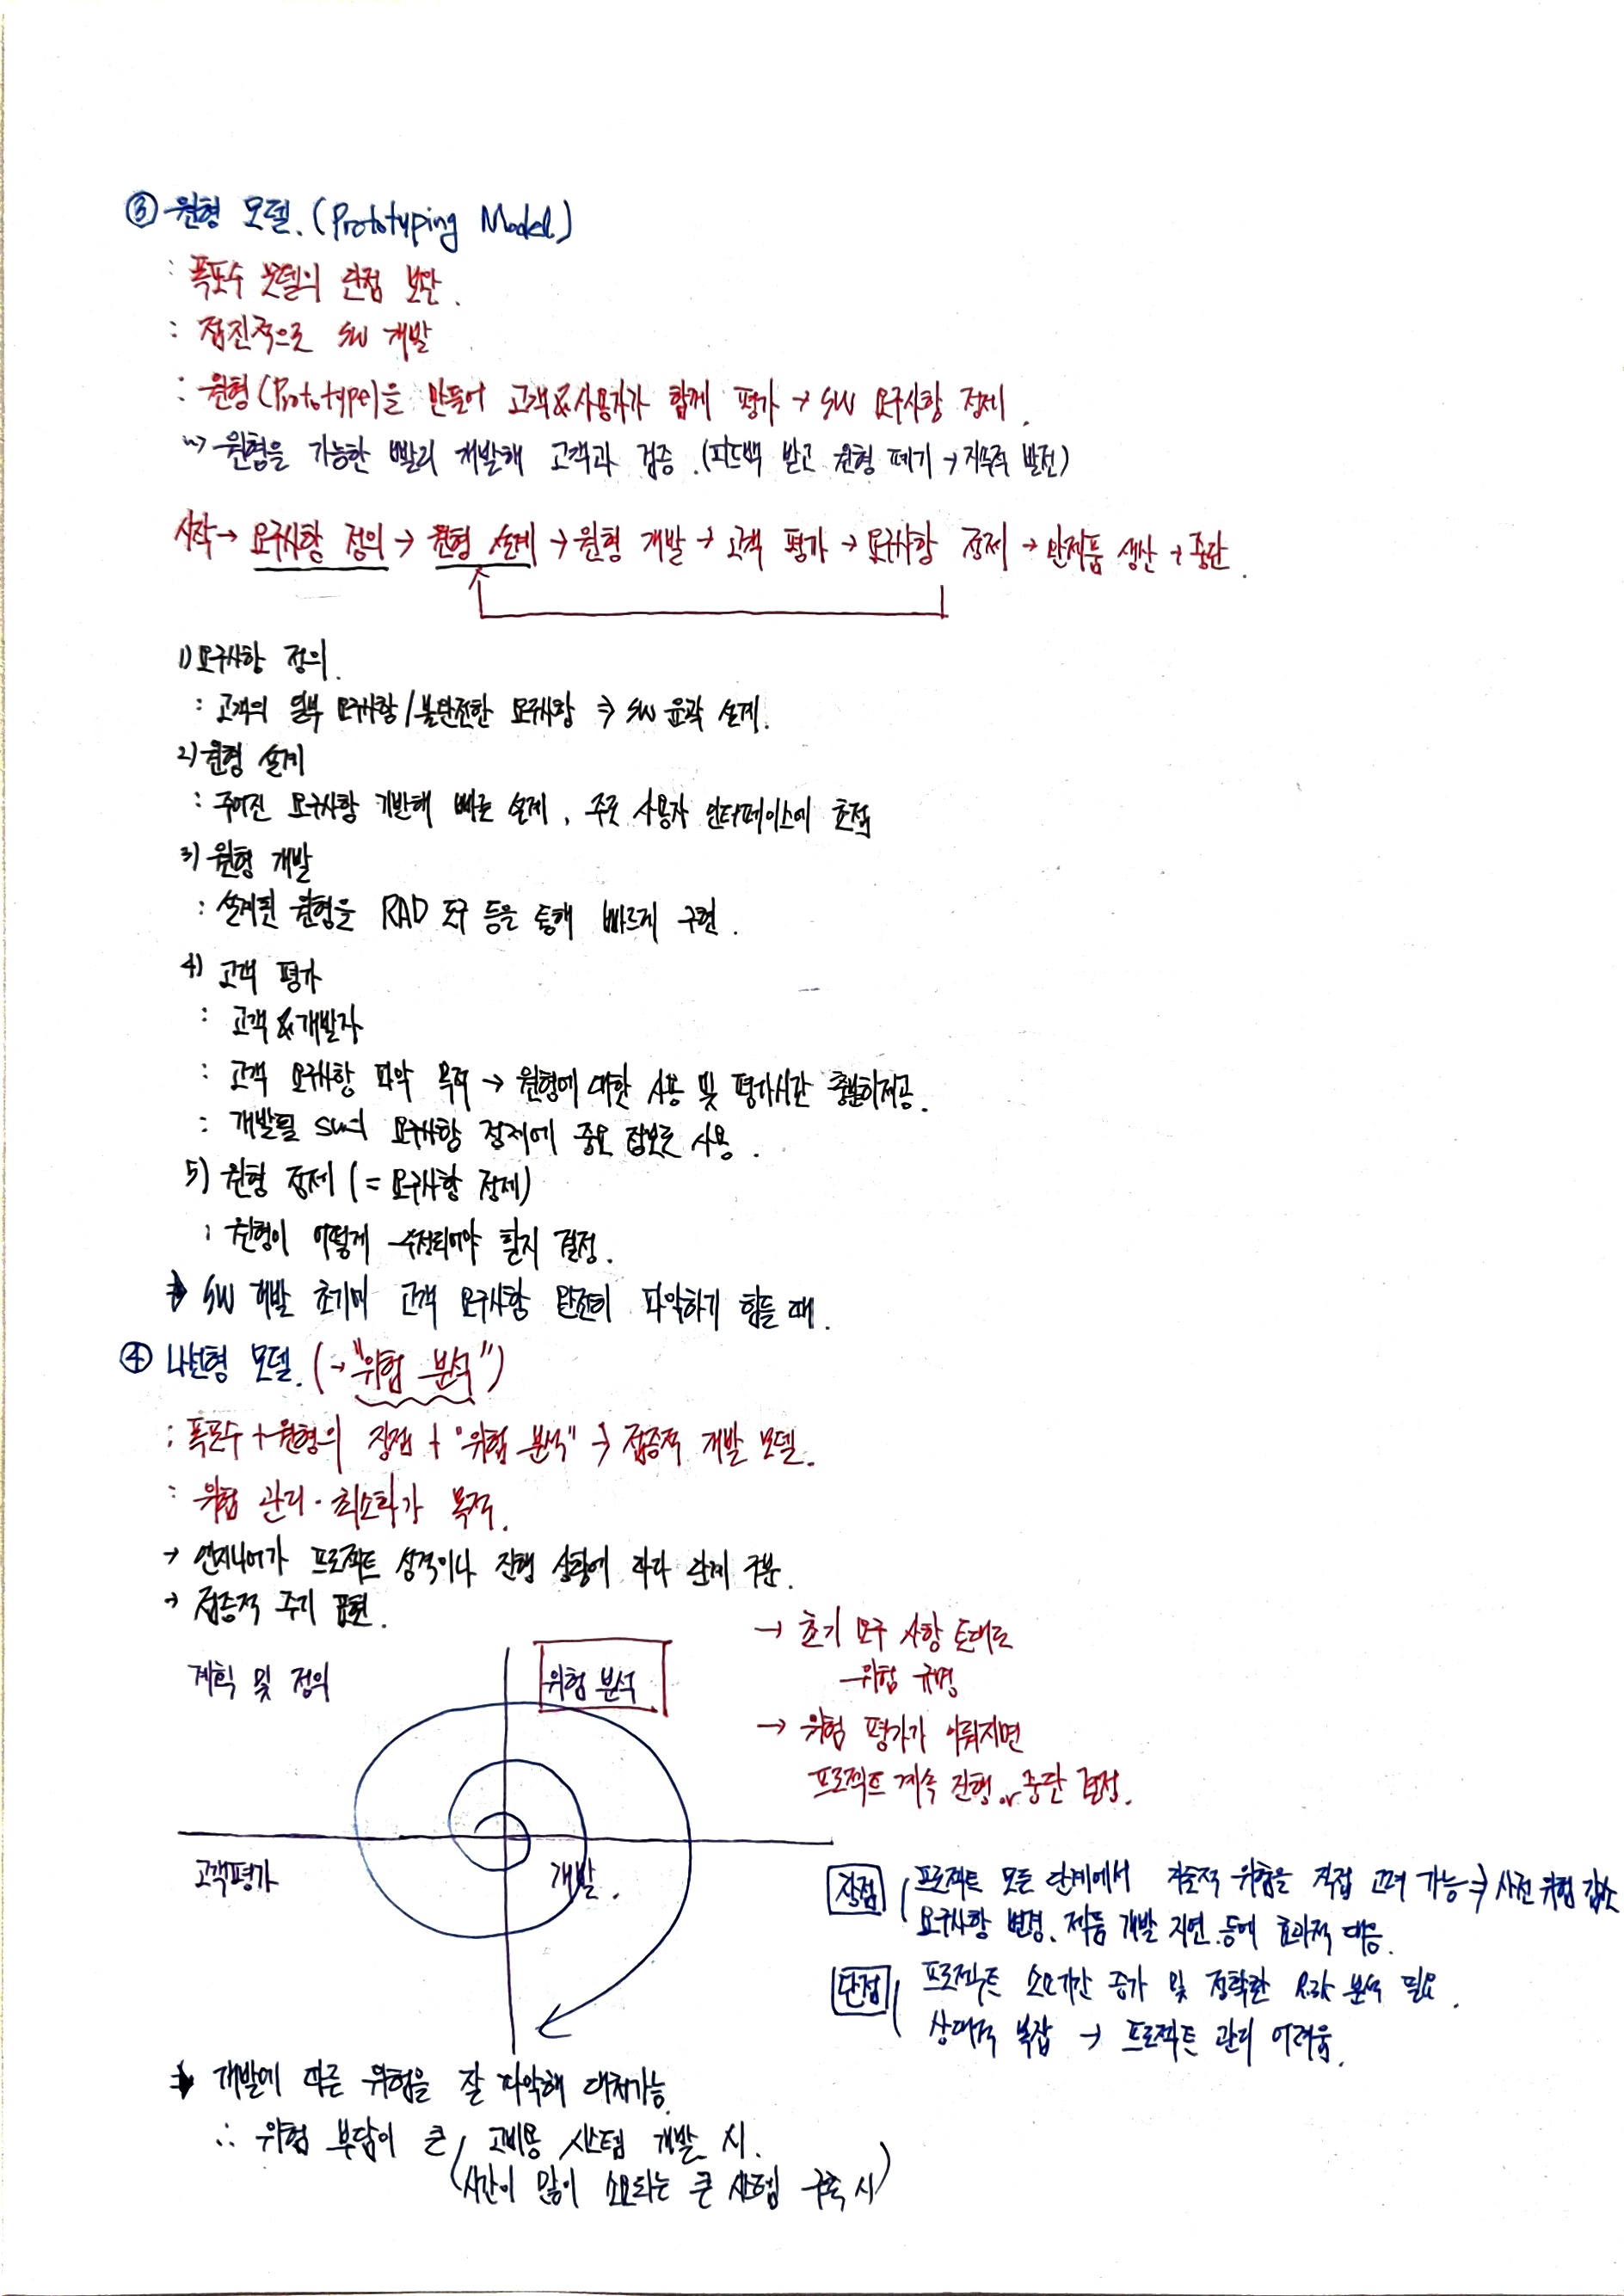 ③ 원형 모델. (Prototyping Model.)
: 폭포수 모델의 단점 보완.
: 점진적으로 SW 개발
: 원형(Prototype)을 만들어 고객&사용자가 함께 평가 → SW 요구사항 정제.
↝ 원형을 가능한 빨리 개발해 고객과 검증. (피드백 받고 원형 폐기 → 지속적 발전)
시작 → 요구사항 정의 → 원형 설계 → 원형 개발 → 고객 평가 → 요구사항 정제 → 완제품 생산 → 중단.
1) 요구사항 정의.
: 고객의 일부 요구사항 / 불완전한 요구사항 ⇒ SW 윤곽 설계.
2) 원형 설계
: 주어진 요구사항 기반해 빠른 설계, 주로 사용자 인터페이스에 초점
3) 원형 개발
: 설계된 원형을 RAD 도구 등을 통해 빠르게 구현.
4) 고객 평가
: 고객&개발자
: 고객 요구사항 파악 목적 → 원형에 대한 사용 및 평가시간 충분히 제공.
: 개발될 SW의 요구사항 정제에 중요 정보로 사용.
5) 원형 정제 (= 요구사항 정제)
: 원형이 어떻게 수정되어야 할지 결정.
⇒ SW 개발 초기에 고객 요구사항 완전히 파악하기 힘들 때.
④ 나선형 모델. (→ "위험 분석")
: 폭포수 + 원형의 장점 + "위험 분석" → 점증적 개발 모델.
: 위험 관리·최소화가 목적.
→ 엔지니어가 프로젝트 성격이나 진행 상황에 따라 단계 구분.
→ 점증적 주기 표현.
계획 및 정의
위험 분석
→ 초기 요구 사항 토대로
위험 규명
→ 위험 평가가 이뤄지면
프로젝트 계속 진행 or 중단 결정.
고객평가
개발.
장점 프로젝트 모든 단계에서 기술적 위험을 직접 고려 가능 ⇒ 사전 위험 감소
요구사항 변경, 제품 개발 지연 등에 효과적 대응.
단점 프로젝트 소요기간 증가 및 정확한 분석 필요.
상대적 복잡 → 프로젝트 관리 어려움.
⇒ 개발에 따른 위험을 잘 파악해 대처가능.
∴ 위험 부담이 큰 / 고비용 시스템 개발 시.
(시간이 많이 소요되는 큰 시스템 구축 시)